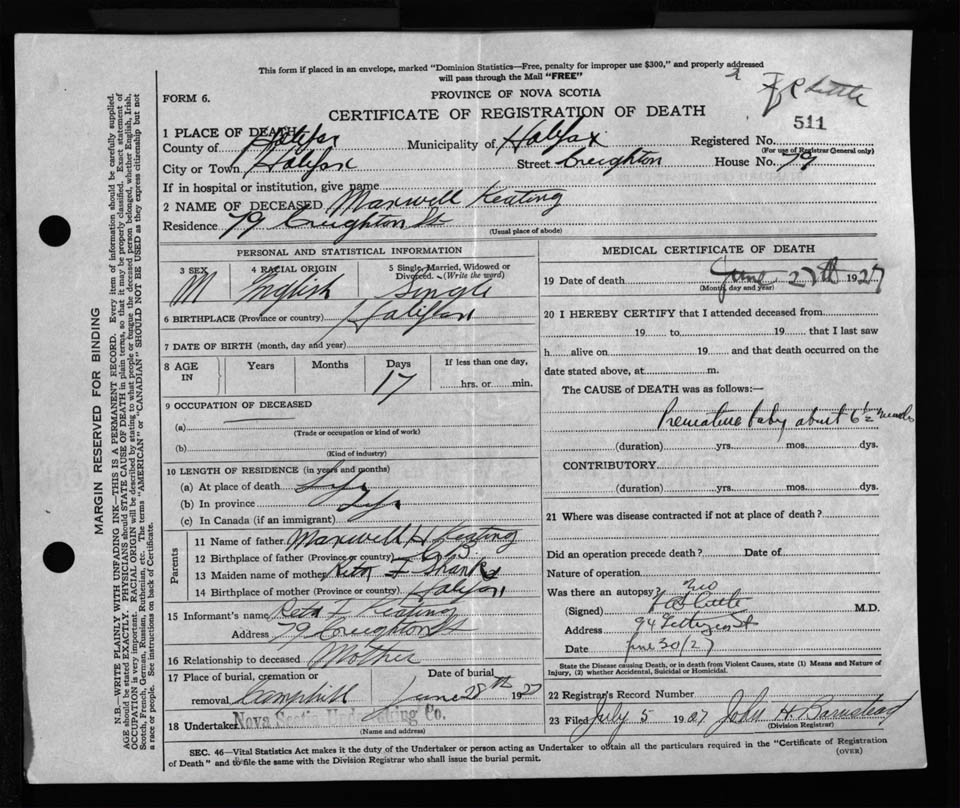 This form if placed in an envelope, marked "Dominion Statistics—Free, penalty for improper use $300," and properly addressed
will pass through the Mail "FREE"
FORM 6.
PROVINCE OF NOVA SCOTIA
CERTIFICATE OF REGISTRATION OF DEATH
511
1 PLACE OF DEATH
County of Halifax Municipality of Halifax Registered No.
(For use of Registrar General only)
City or Town Halifax Street Creighton House No. 79
If in hospital or institution, give name
2 NAME OF DECEASED Maxwell Keating
Residence 79 Creighton St
(Usual place of abode)
PERSONAL AND STATISTICAL INFORMATION
3 SEX 4 RACIAL ORIGIN 5 Single, Married, Widowed or
Divorced. (Write the word)
M English Single
6 BIRTHPLACE (Province or country) Halifax
7 DATE OF BIRTH (month, day and year)
8 AGE IN Years Months Days If less than one day,
17 hrs. or min.
9 OCCUPATION OF DECEASED
(a)
(Trade or occupation or kind of work)
(b)
(Kind of industry)
10 LENGTH OF RESIDENCE (in years and months)
(a) At place of death Life
(b) In province
(c) In Canada (if an immigrant)
Parents
11 Name of father Maxwell H Keating
12 Birthplace of father (Province or country)
13 Maiden name of mother Reta F Shanks
14 Birthplace of mother (Province or country) Halifax
15 Informant's name Reta F Keating
Address 79 Creighton St
16 Relationship to deceased Mother
17 Place of burial, cremation or Date of burial
removal Camphill June 28th 1927
18 Undertaker Nova Scotia Undertaking Co.
(Name and address)
MEDICAL CERTIFICATE OF DEATH
19 Date of death June 27th 1927
(Month, day and year)
20 I HEREBY CERTIFY that I attended deceased from
19 to 19 that I last saw
h alive on 19 and that death occurred on the
date stated above, at m.
The CAUSE of DEATH was as follows:—
Premature baby about 6½ months
(duration) yrs. mos. dys.
CONTRIBUTORY.
(duration) yrs. mos. dys.
21 Where was disease contracted if not at place of death?
Did an operation precede death? Date of
Nature of operation
Was there an autopsy? no
(Signed) M.D.
Address 94 St
Date June 30/27
State the Disease causing Death, or in death from Violent Causes, state (1) Means and Nature of
Injury, (2) whether Accidental, Suicidal or Homicidal.
22 Registrar's Record Number
23 Filed July 5 1927 John H. Barnstead
(Division Registrar)
SEC. 46—Vital Statistics Act makes it the duty of the Undertaker or person acting as Undertaker to obtain all the particulars required in the "Certificate of Registration
of Death" and to file the same with the Division Registrar who shall issue the burial permit.
(OVER)
MARGIN RESERVED FOR BINDING
N.B.—WRITE PLAINLY WITH UNFADING INK—THIS IS A PERMANENT RECORD. Every item of information should be carefully supplied.
AGE should be stated EXACTLY. PHYSICIANS should STATE CAUSE OF DEATH in plain terms, so that it may be properly classified. Exact statement of
OCCUPATION is very important. RACIAL ORIGIN will be described by stating to what people or tongue the deceased person belonged, whether English, Irish,
Scotch, French, German, Russian, Ruthenian, etc. The terms "AMERICAN" or "CANADIAN" SHOULD NOT BE USED as they express citizenship but not
a race or people. See instructions on back of Certificate.